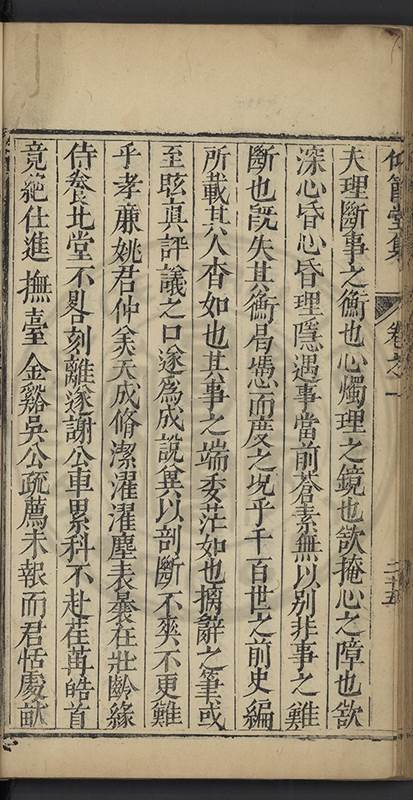 仰節堂集 卷之一 二十五
夫理斷事之衡也心燭理之鏡也欲掩心之障也欲
深心昏心昏理隱遇事當前蒼素無以别非事之難
斷也既失其衡曷憑而度之况乎千百世之前史編
所載其人杳如也其事之端委茫如也摛辭之筆或
至眩真評議之口遂爲成說兾以剖斷不爽不更難
乎孝廉姚君仲矣天成脩潔濯濯塵表暴在壯齡緣
侍養北堂不畧刻離遂謝公車累科不赴荏苒皓首
竟絶仕進撫臺金谿吳公疏薦未報而君恬處畎